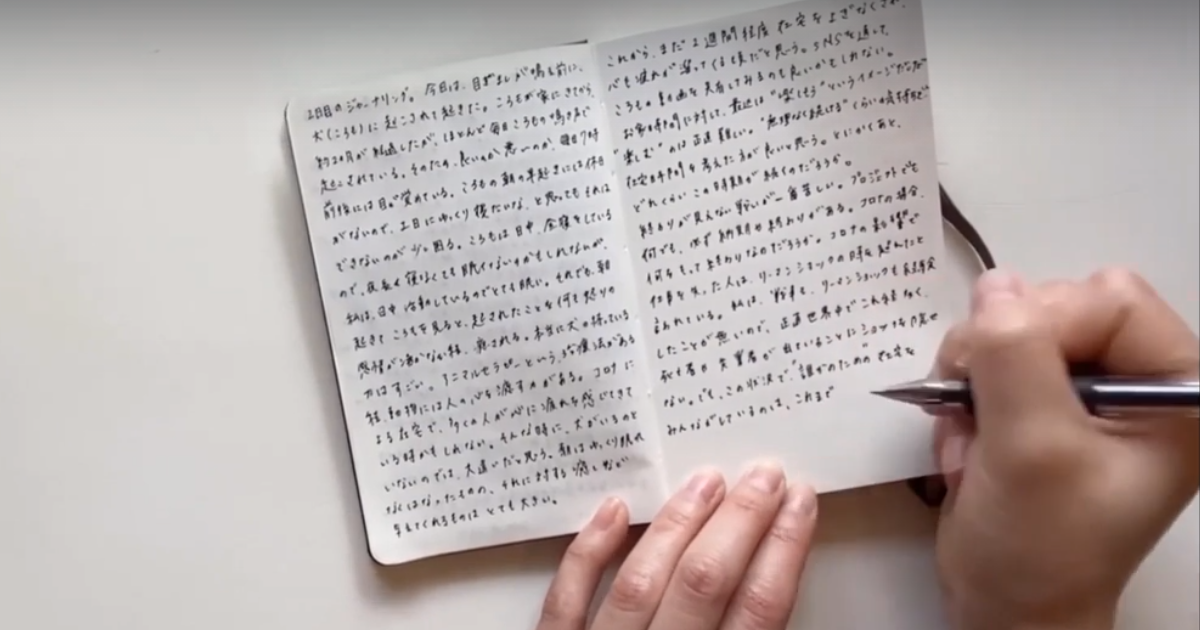 2日目のジャーナリング。今日は、目ざましが鳴る前に、
犬(ころも)に起こされて起きた。ころもが家にきてから、
約2ヶ月が経過したが、ほとんど毎日ころもの鳴き声で
起こされている。そのため、良いのか悪いのか、毎日7時
前後には目が覚めている。ころもの朝の早起きには休日
がないので、土日にゆっくり寝たいな、と思ってもそれは
できないのが少し困る。ころもは日中、昼寝をしている
ので、夜長く寝なくても眠くないのかもしれないが、
私は、日中活動しているのでとても眠い。それでも、朝
起きてころもを見ると、起こされたことを何て怒りの
感情が湧かない程、癒される。本当に犬の持っている
力はすごい。アニマルセラピーという療法がある
程、動物には人の心を癒す力がある。コロナに
よる在宅で、多くの人が心に疲れを感じてきて
いる時かもしれない。そんな時に、犬がいるのと
いないのでは、大違いだと思う。朝はゆっくり眠れ
なくはなったものの、それに対する癒しなが
与えてくれるものはとても大きい。
これから、まだ2週間程度在宅をよぎなくされ、
心も疲れが溜ってくる頃だと思う。SNSを通して、
ころもの動画を共有してみるのも良いかもしれない。
お家時間に対して、最近は"楽しもう"というイメージだが
"楽しむ"のは正直難しい。"無理なく続ける"くらいの気持ちで
在宅時間を考えた方が良いと思う。とにかくあと、
どれくらいこの時期が続くのだろうか。
終わりが見えない戦いが一番苦しい。プロジェクトでも
何でも、必ず納期や終わりがある。コロナの場合、
何をもって終わりなのだろうか。コロナの影響で
仕事を失った人は、リーマンショックの時を越えたと
言われている。私は、戦争も、リーマンショックも
したことが無いので、正直世界中でこれほど多く、
死者や失業者が出ていることにショックを隠せ
ない。でも、この状況で、"誰かのための"在宅を
みんながしているのは、これまで